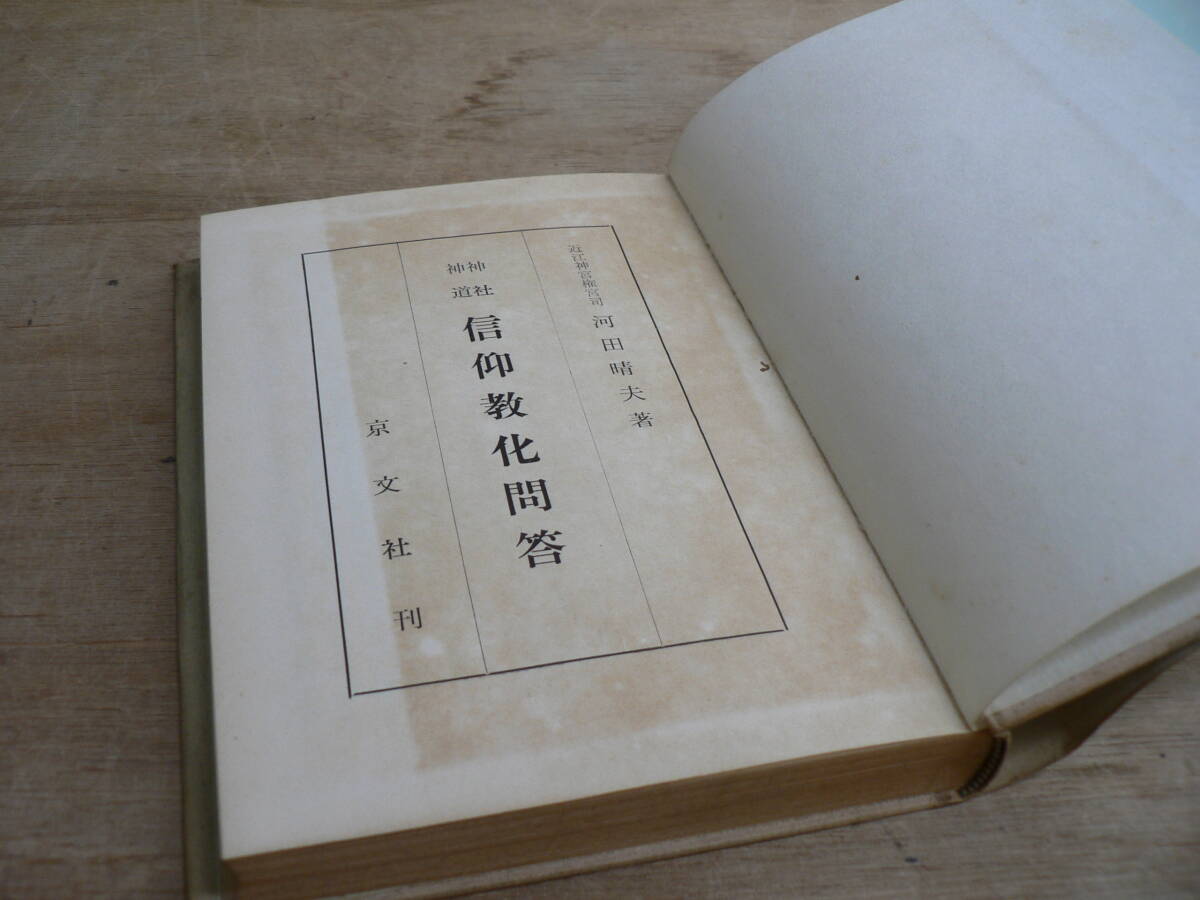 近江神宮権宮司 河田晴夫著
神社
神道
信仰教化問答
京文社刊